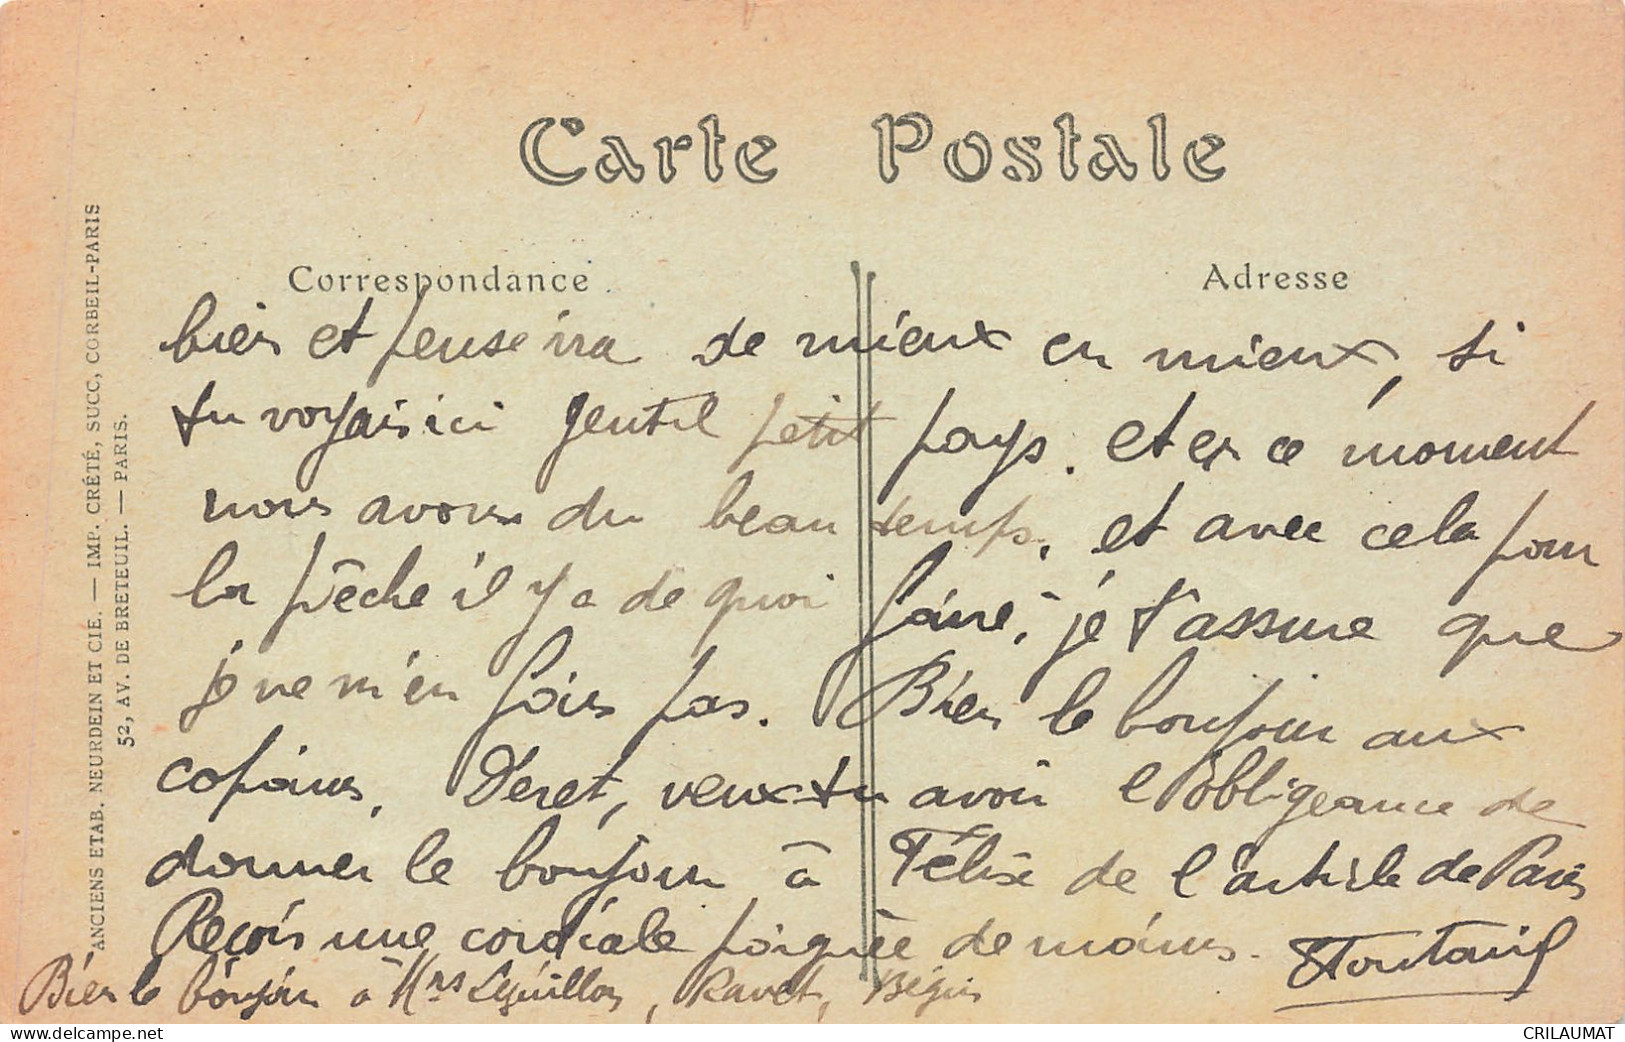 Carte Postale
Correspondance
Adresse
ANCIENS ETAB. NEURDEIN ET CIE. — IMP. CRÉTÉ, SUCC, CORBEIL-PARIS
52, AV. DE BRETEUIL. — PARIS.
bien et pense ira de mieux en mieux, si
tu voyais ici gentil petit pays. et en ce moment
nous avons du beau temps, et avec cela pour
la pêche il y a de quoi faire, je t'assure que
je ne m'en fais pas. Bien le bonjour aux
copains. Deret, veux-tu avoir l'obligeance de
donner le bonjour à Félix de l'article de Paris
Reçois une cordiale poignée de mains.
Bien le bonjour à Mrs Leguillon, Ravet, Bégin
www.delcampe.net
CRILAUMAT